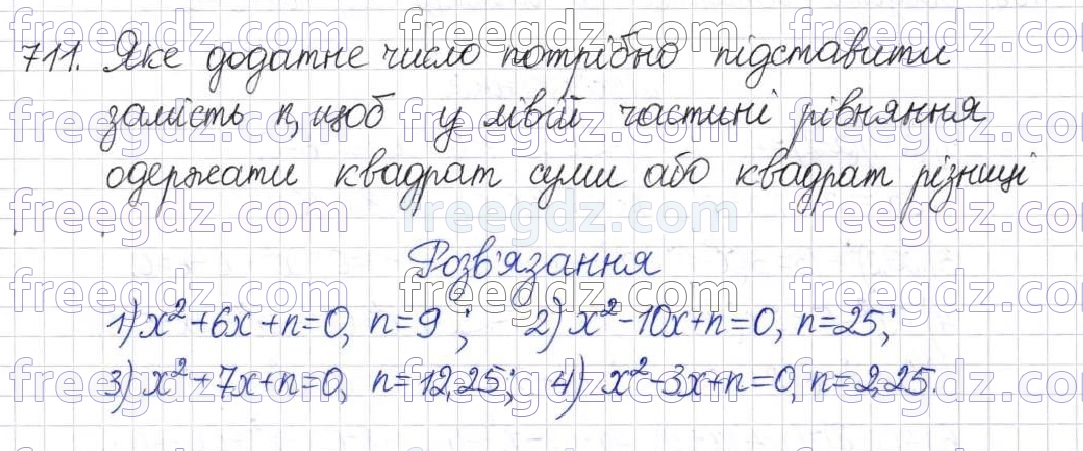 711. Яке додатне число потрібно підставити
замість n, щоб у лівій частині рівняння
одержати квадрат суми або квадрат різниці
Розв'язання
1) x²+6x+n=0, n=9; 2) x²-10x+n=0, n=25;
3) x²+7x+n=0, n=12,25; 4) x²-3x+n=0, n=2,25.
freegdz.com